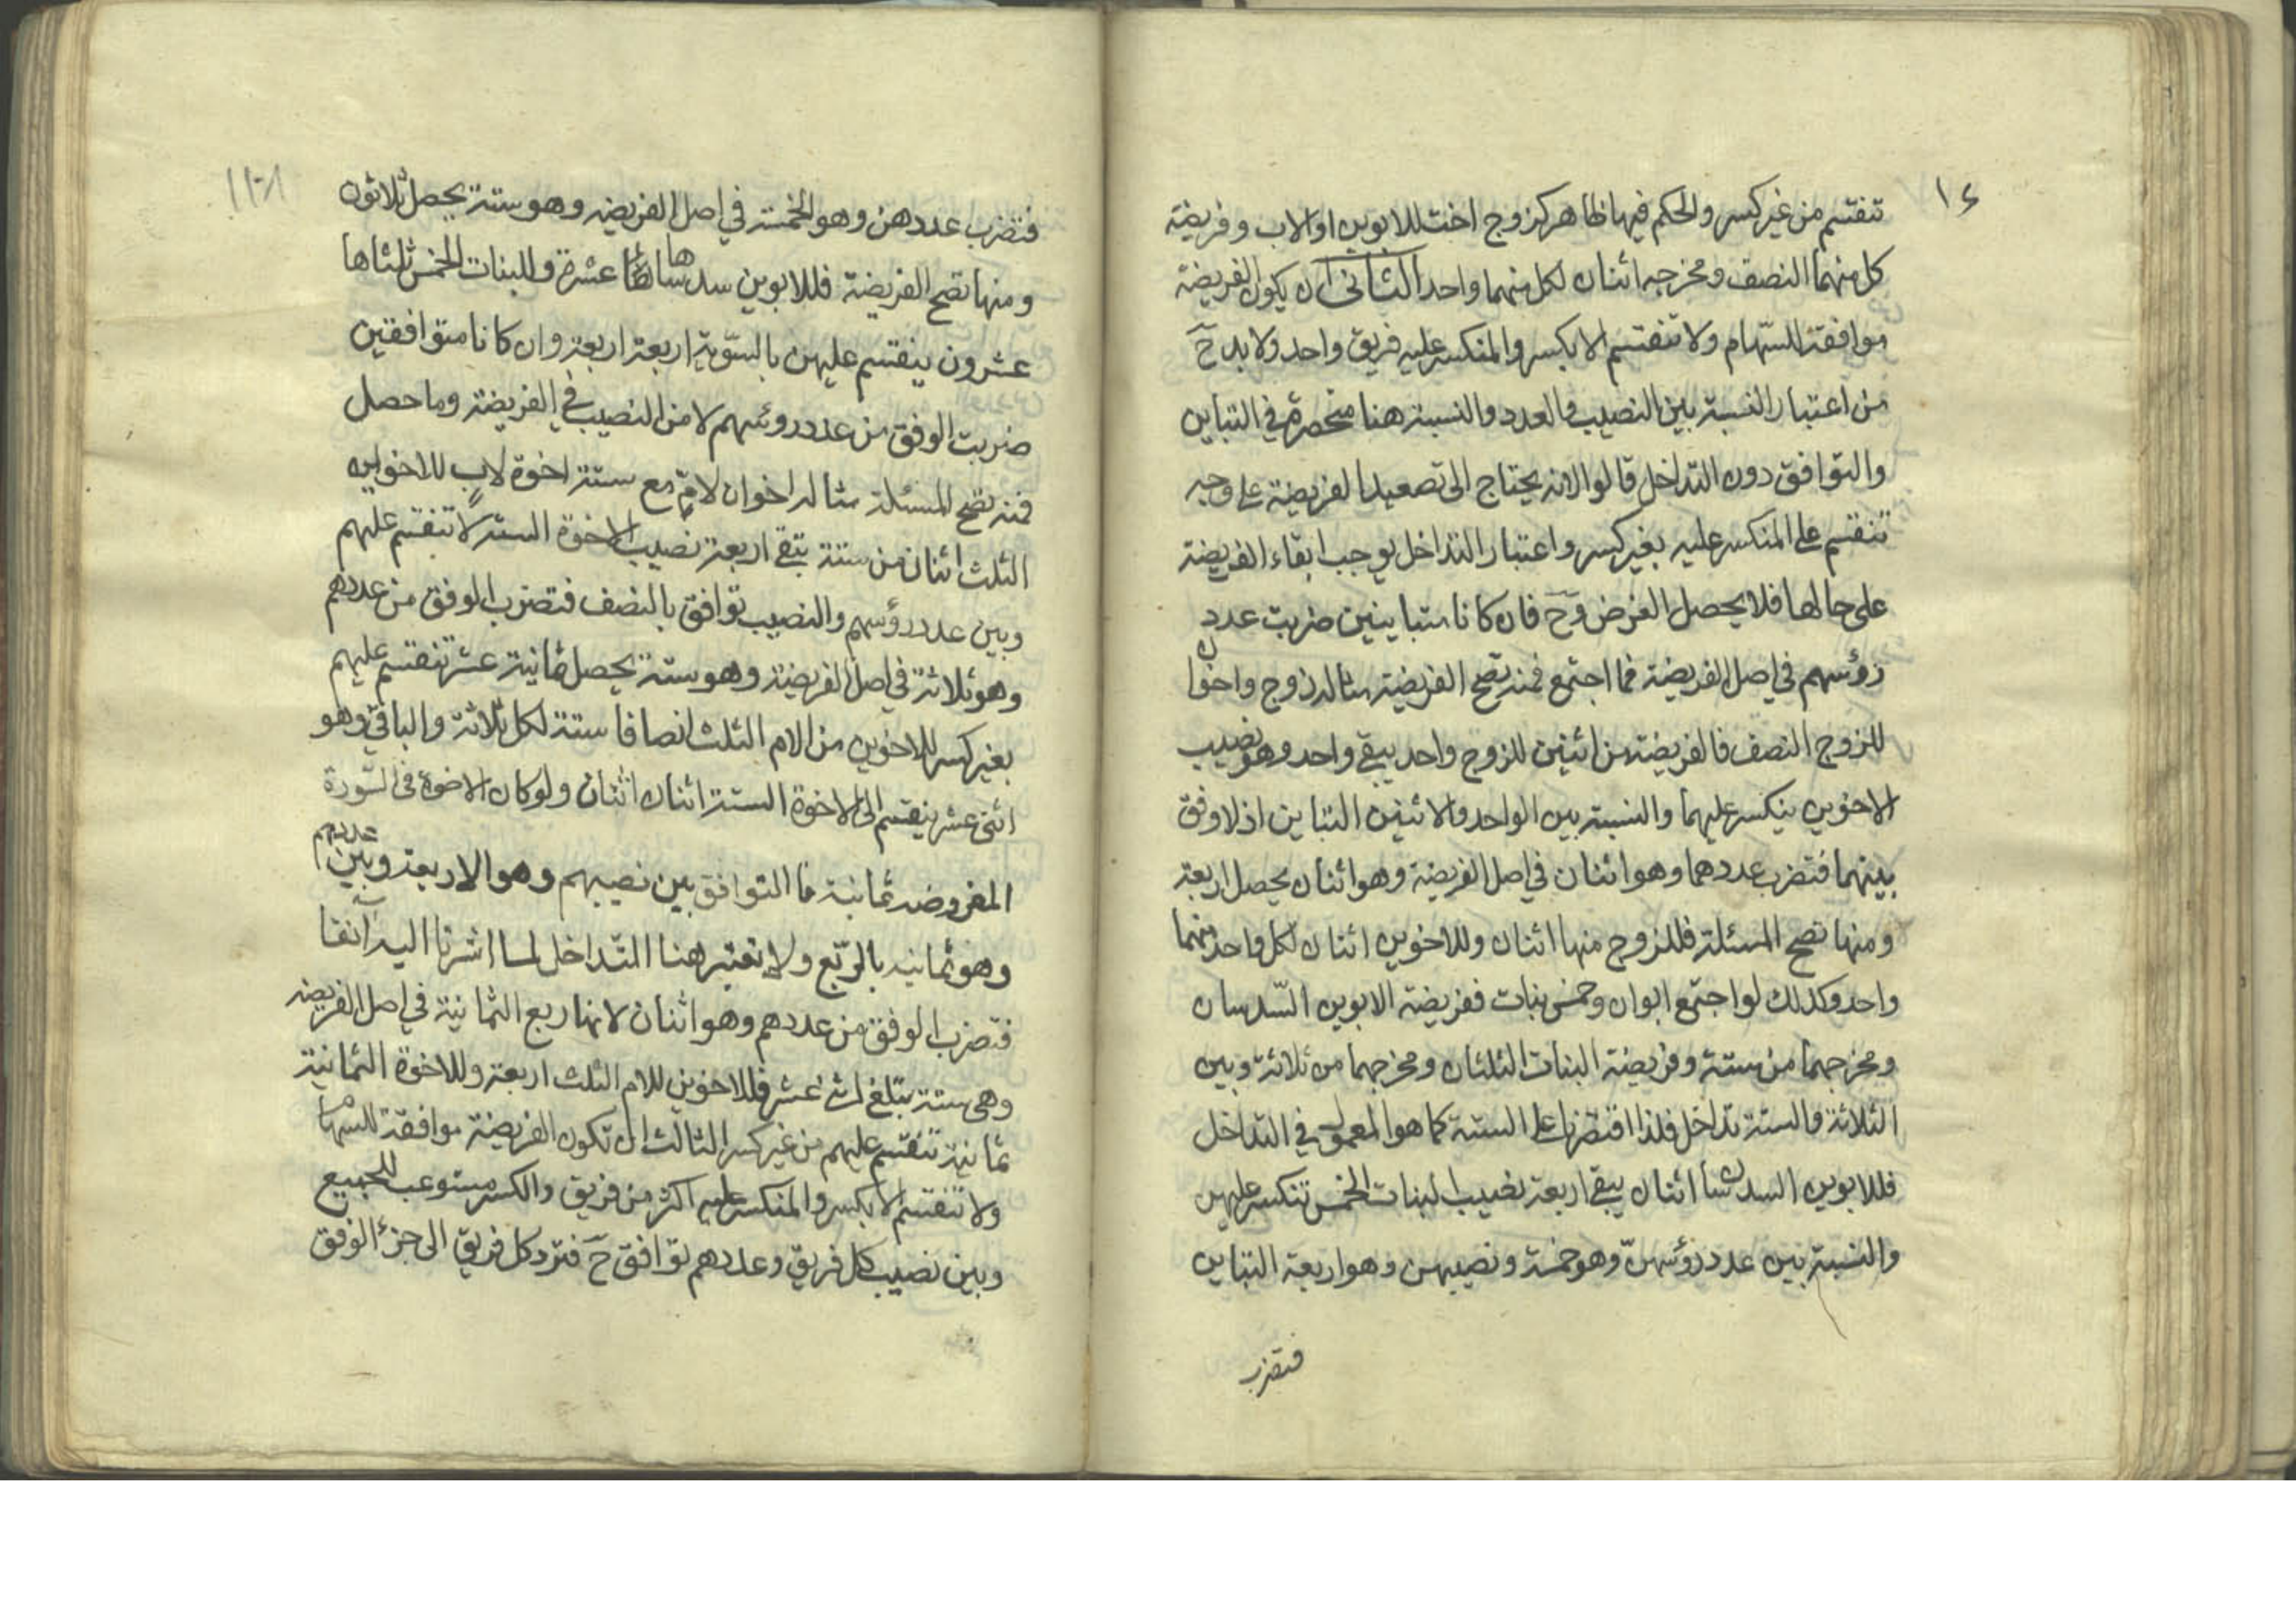 ١٤
تنقسم من غير كسر والحكم فيها ظاهر كزوج اخت للابوين او لاب وفريضة
كل منهما النصف ومخرجه اثنان لكل منهما واحد الثانى ان يكون الفريضة
موافقة للسّهام ولا تنقسم الا بكسر والمنكسر عليه فريق واحد ولا بد حَ
من اعتبار النسبة بين النصيب والعدد والنسبة هنا منحصرة في التباين
والتوافق دون التداخل قالوا لانه يحتاج الى تصعيد الفريضة على وجه
تنقسم على المنكسر عليه بغير كسر واعتبار التداخل يوجب ابقاء الفريضة
على حالها فلا يحصل الغرض وحَ فان كانا متباينين ضربت عدد
رؤسهم في اصل الفريضة فما اجتمع فمنه تصح الفريضة مثاله زوج واخوان
للزوج النصف فالفريضة من اثنين للزوج واحد يبقى واحد وهو نصيب
الاخوين ينكسر عليهما والنسبة بين الواحد والاثنين التباين اذ لا وفق
بينهما فتضرب عددهما وهو اثنان في اصل الفريضة وهو اثنان يحصل اربعة
ومنها تصح المسئلة فللزوج منها اثنان وللاخوين اثنان لكل واحد منهما
واحد وكذلك لو اجتمع ابوان وخمس بنات ففريضة الابوين السّدسان
ومخرجهما من ستة وفريضة البنات الثلثان ومخرجهما من ثلاثة وبين
الثلاثة والستة تداخل فلذا اقتصرنا على الستة كما هو المعمول في التداخل
فللابوين السدسان اثنان يبقى اربعة نصيب البنات الخمس تنكسر عليهن
والنسبة بين عدد رؤسهنّ وهو خمسة ونصيبهن وهو اربعة التباين
فتضرب
فتضرب عددهن وهو الخمسة في اصل الفريضه وهو ستة يحصل ثلاثون
ومنها تصح الفريضة فللابوين سدساها عشرة وللبنات الخمس ثلثاها
عشرون ينقسم عليهن بالسّوية اربعة اربعة وان كانا متوافقين
ضربت الوفق من عدد رؤسهم لا من النصيب في الفريضة وما حصل
فمنه تصح المسئلة مثاله اخوان لامّ مع ستة اخوة لابٍ للاخوين
الثلث اثنان من ستة يبقى اربعة نصيب الاخوة الستة لا تنقسم عليهم
وبين عدد رؤسهم والنصيب توافق بالنصف فتضرب الوفق من عددهم
وهو ثلاثة في اصل الفريضة وهو ستة يحصل ثمانية عشر تنقسم عليهم
بغير كسر للاخوين من الام الثلث انصافا ستة لكل ثلاثة والباقى وهو
اثنى عشر ينقسم الى الاخوة الستة اثنان اثنان ولو كان الاخوة فى الصّورة
المفروضه ثمانية فالتوافق بين نصيبهم وهو الاربعة وبين عددهم
وهو ثمانيه بالرّبع ولا نعتبر هنا التّداخل لما اشرنا اليه آنفا
فتضرب الوفق من عددهم وهو اثنان لانها ربع الثمانية في اصل الفريضه
وهى ستة تبلغ اثنى عشر فللاخوين للام الثلث اربعة وللاخوة الثمانية
ثمانية تنقسم عليهم من غير كسر الثالث ان تكون الفريضة موافقة للسهام
ولا تنقسم الا بكسر والمنكسر عليه اكثر من فريق والكسر مستوعب للجميع
وبين نصيب كل فريق وعددهم توافق حَ فترد كل فريق الى جزء الوفق